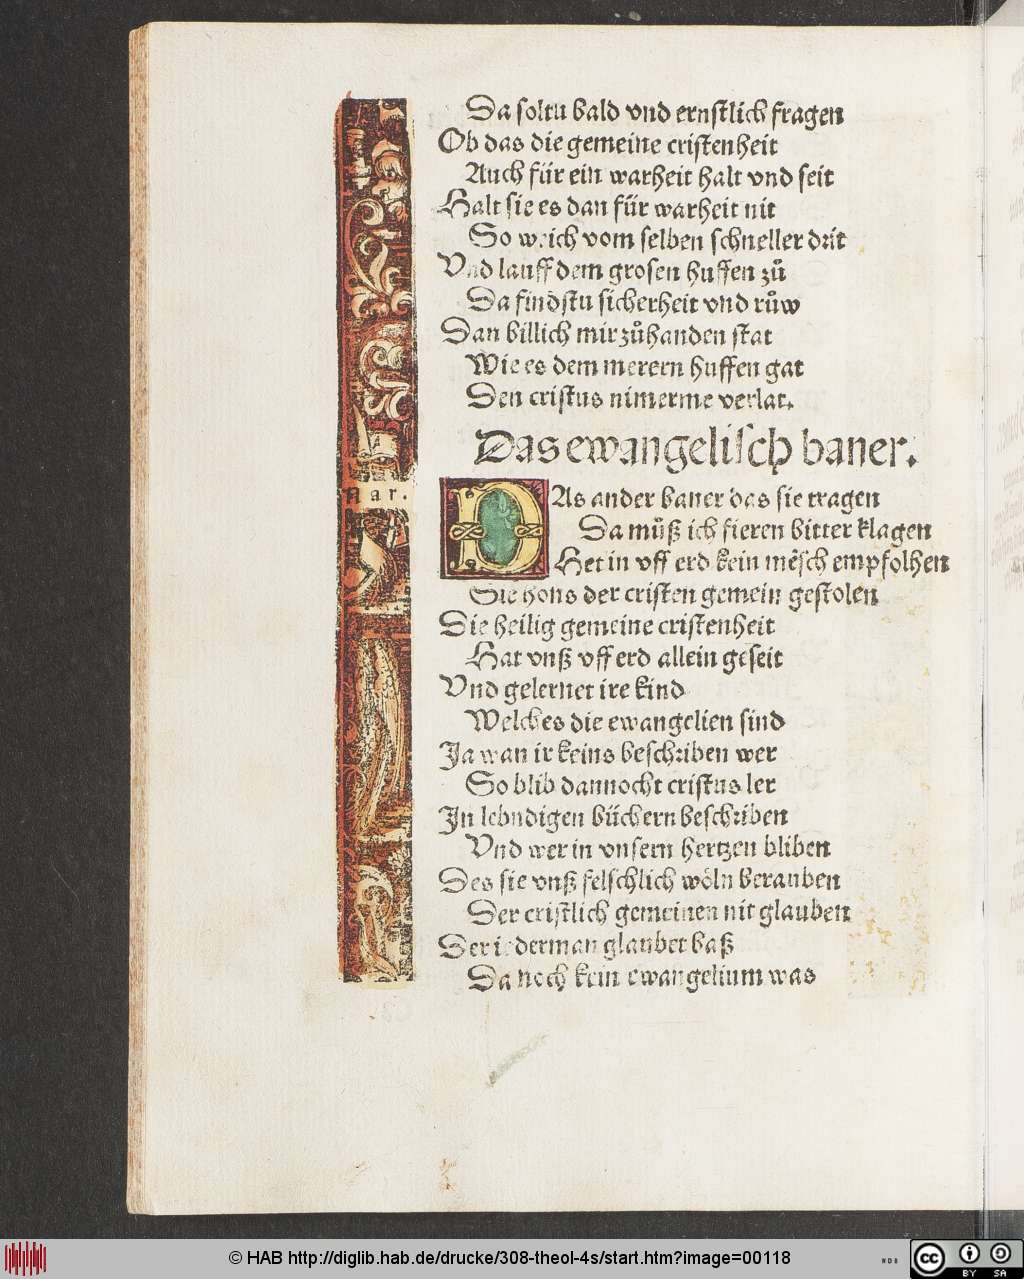 Da soltu bald vnd ernstlich fragen
Ob das die gemeine cristenheit
Auch für ein warheit halt vnd seit
Halt sie es dan für warheit nit
So weich vom selben schneller drit
Vnd lauff dem grosen huffen zů
Da findstu sicherheit vnd růw
Dan billich mir zůhanden stat
Wie es dem merern huffen gat
Den cristus nimerme verlat.
Das ewangelisch baner.
Nar.
DAs ander baner das sie tragen
Da můß ich fieren bitter klagen
Het in vff erd kein mēsch empfolhen
Sie hons der cristen gemein gestolen
Die heilig gemeine cristenheit
Hat vnß vff erd allein geseit
Vnd gelernet ire kind
Welches die ewangelien sind
Ja wan ir keins beschriben wer
So blib dannocht cristus ler
In lebndigen büchern beschriben
Vnd wer in vnsern hertzen bliben
Des sie vnß felschlich wöln berauben
Der cristlich gemeinen nit glauben
Der iederman glaubet baß
Da noch kein ewangelium was
© HAB http://diglib.hab.de/drucke/308-theol-4s/start.htm?image=00118
cc
BY SA